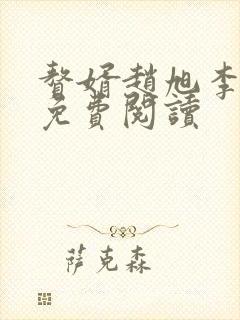 贅婿趙旭李
免費閱讀
薩克森